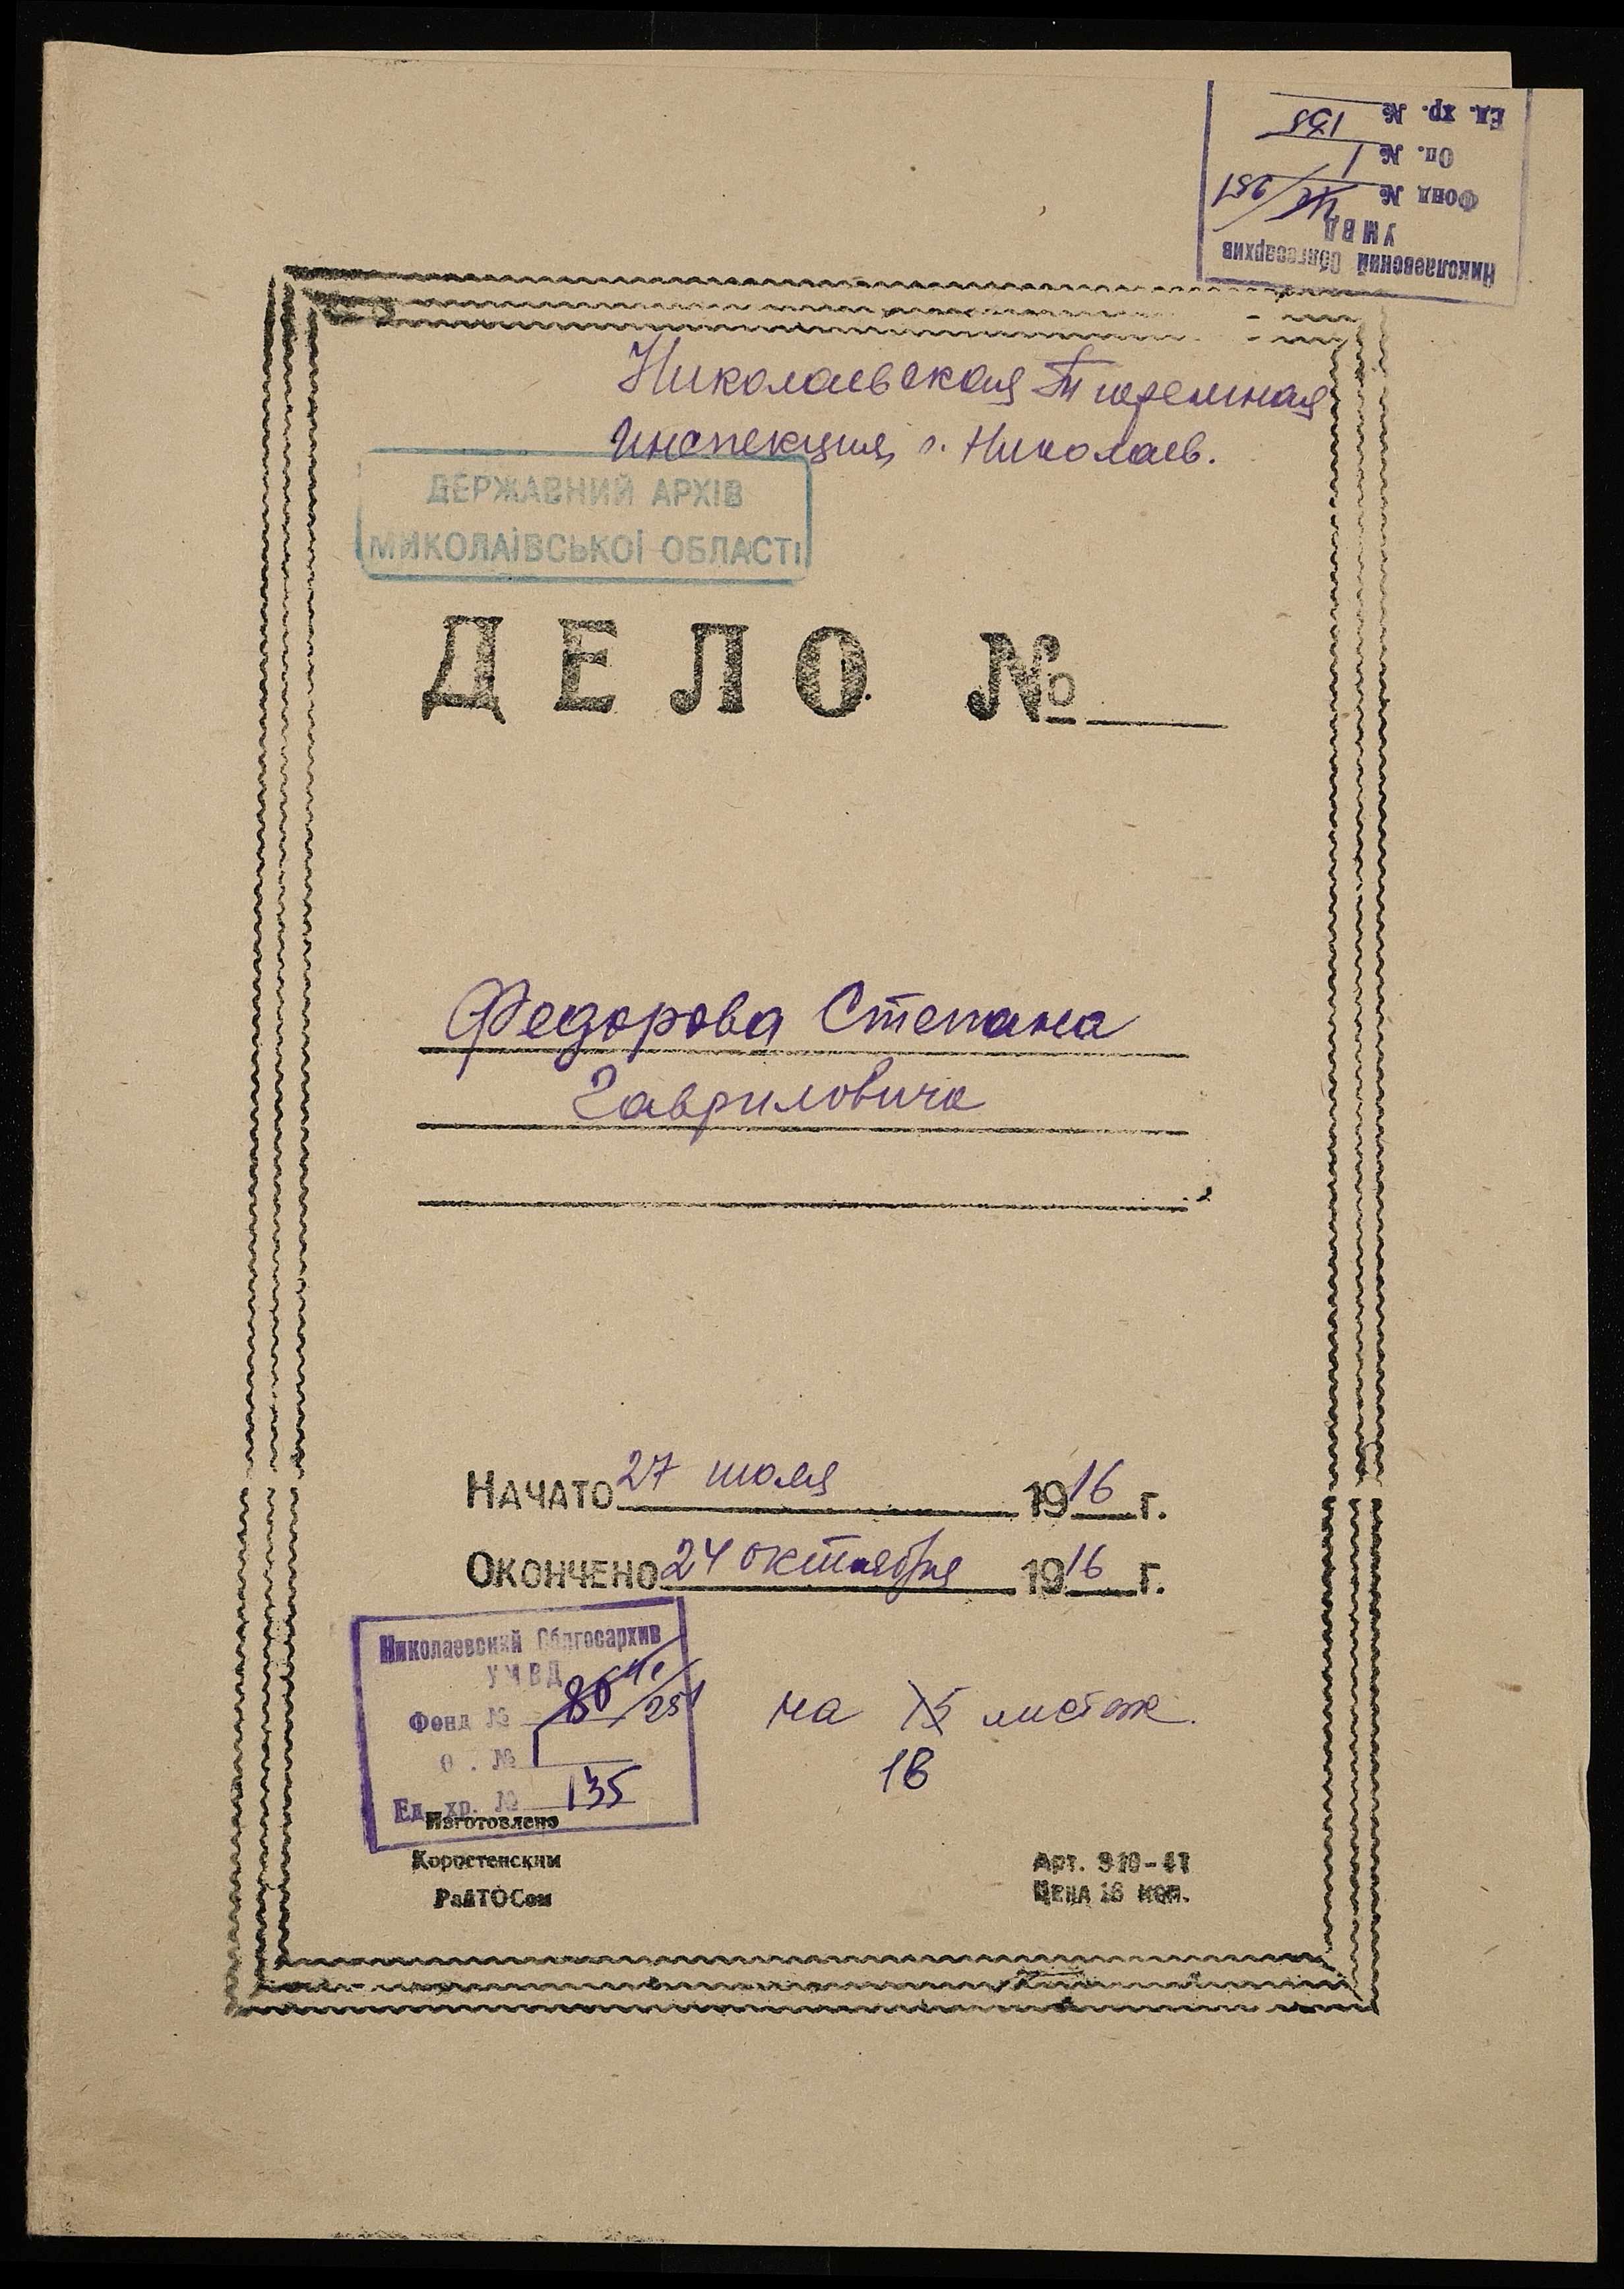 Николаевский Облгосархив
УМВД
Фонд № 251
Оп. № 1
Ед. хр. № 135
Николаевская Тюремная
Инспекция, г. Николаев.
ДЕРЖАВНИЙ АРХІВ
МИКОЛАЇВСЬКОЇ ОБЛАСТІ
ДЕЛО №
Федорова Степана
Гавриловича
НАЧАТО 27 июля 1916 г.
ОКОНЧЕНО 24 октября 1916 г.
Николаевский Облгосархив
УМВД
Фонд № 80 251
О. №
Ед. хр. № 135
на 15 листах.
18
Изготовлено
Коростенским
РайТОСом
Арт. 310-41
Цена 16 коп.